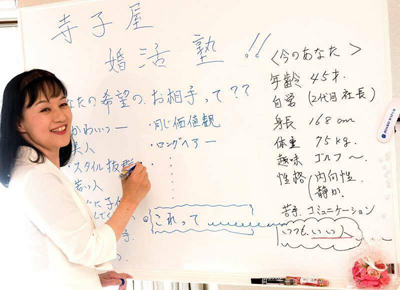 寺子屋
婚活塾!!
なたの希望のお相手って??
かわいー
美人
・スタイル抜群
若い人
・同じ価値観
・ロングヘアー
これって
<今のあなた>
年齢 45才.
自営(2代目社長)
身長 168cm
体重 75kg.
趣味 ゴルフ〜
性格 内向性
静か.
苦手 コミュニケーション
いつもいい人